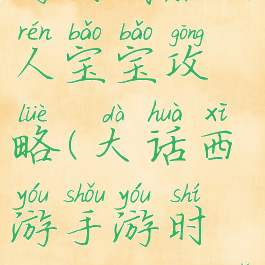 rén bǎo bǎo gōng
人宝宝攻
lüè dà huà xī
略(大话西
yóu shǒu yóu shí
游手游时